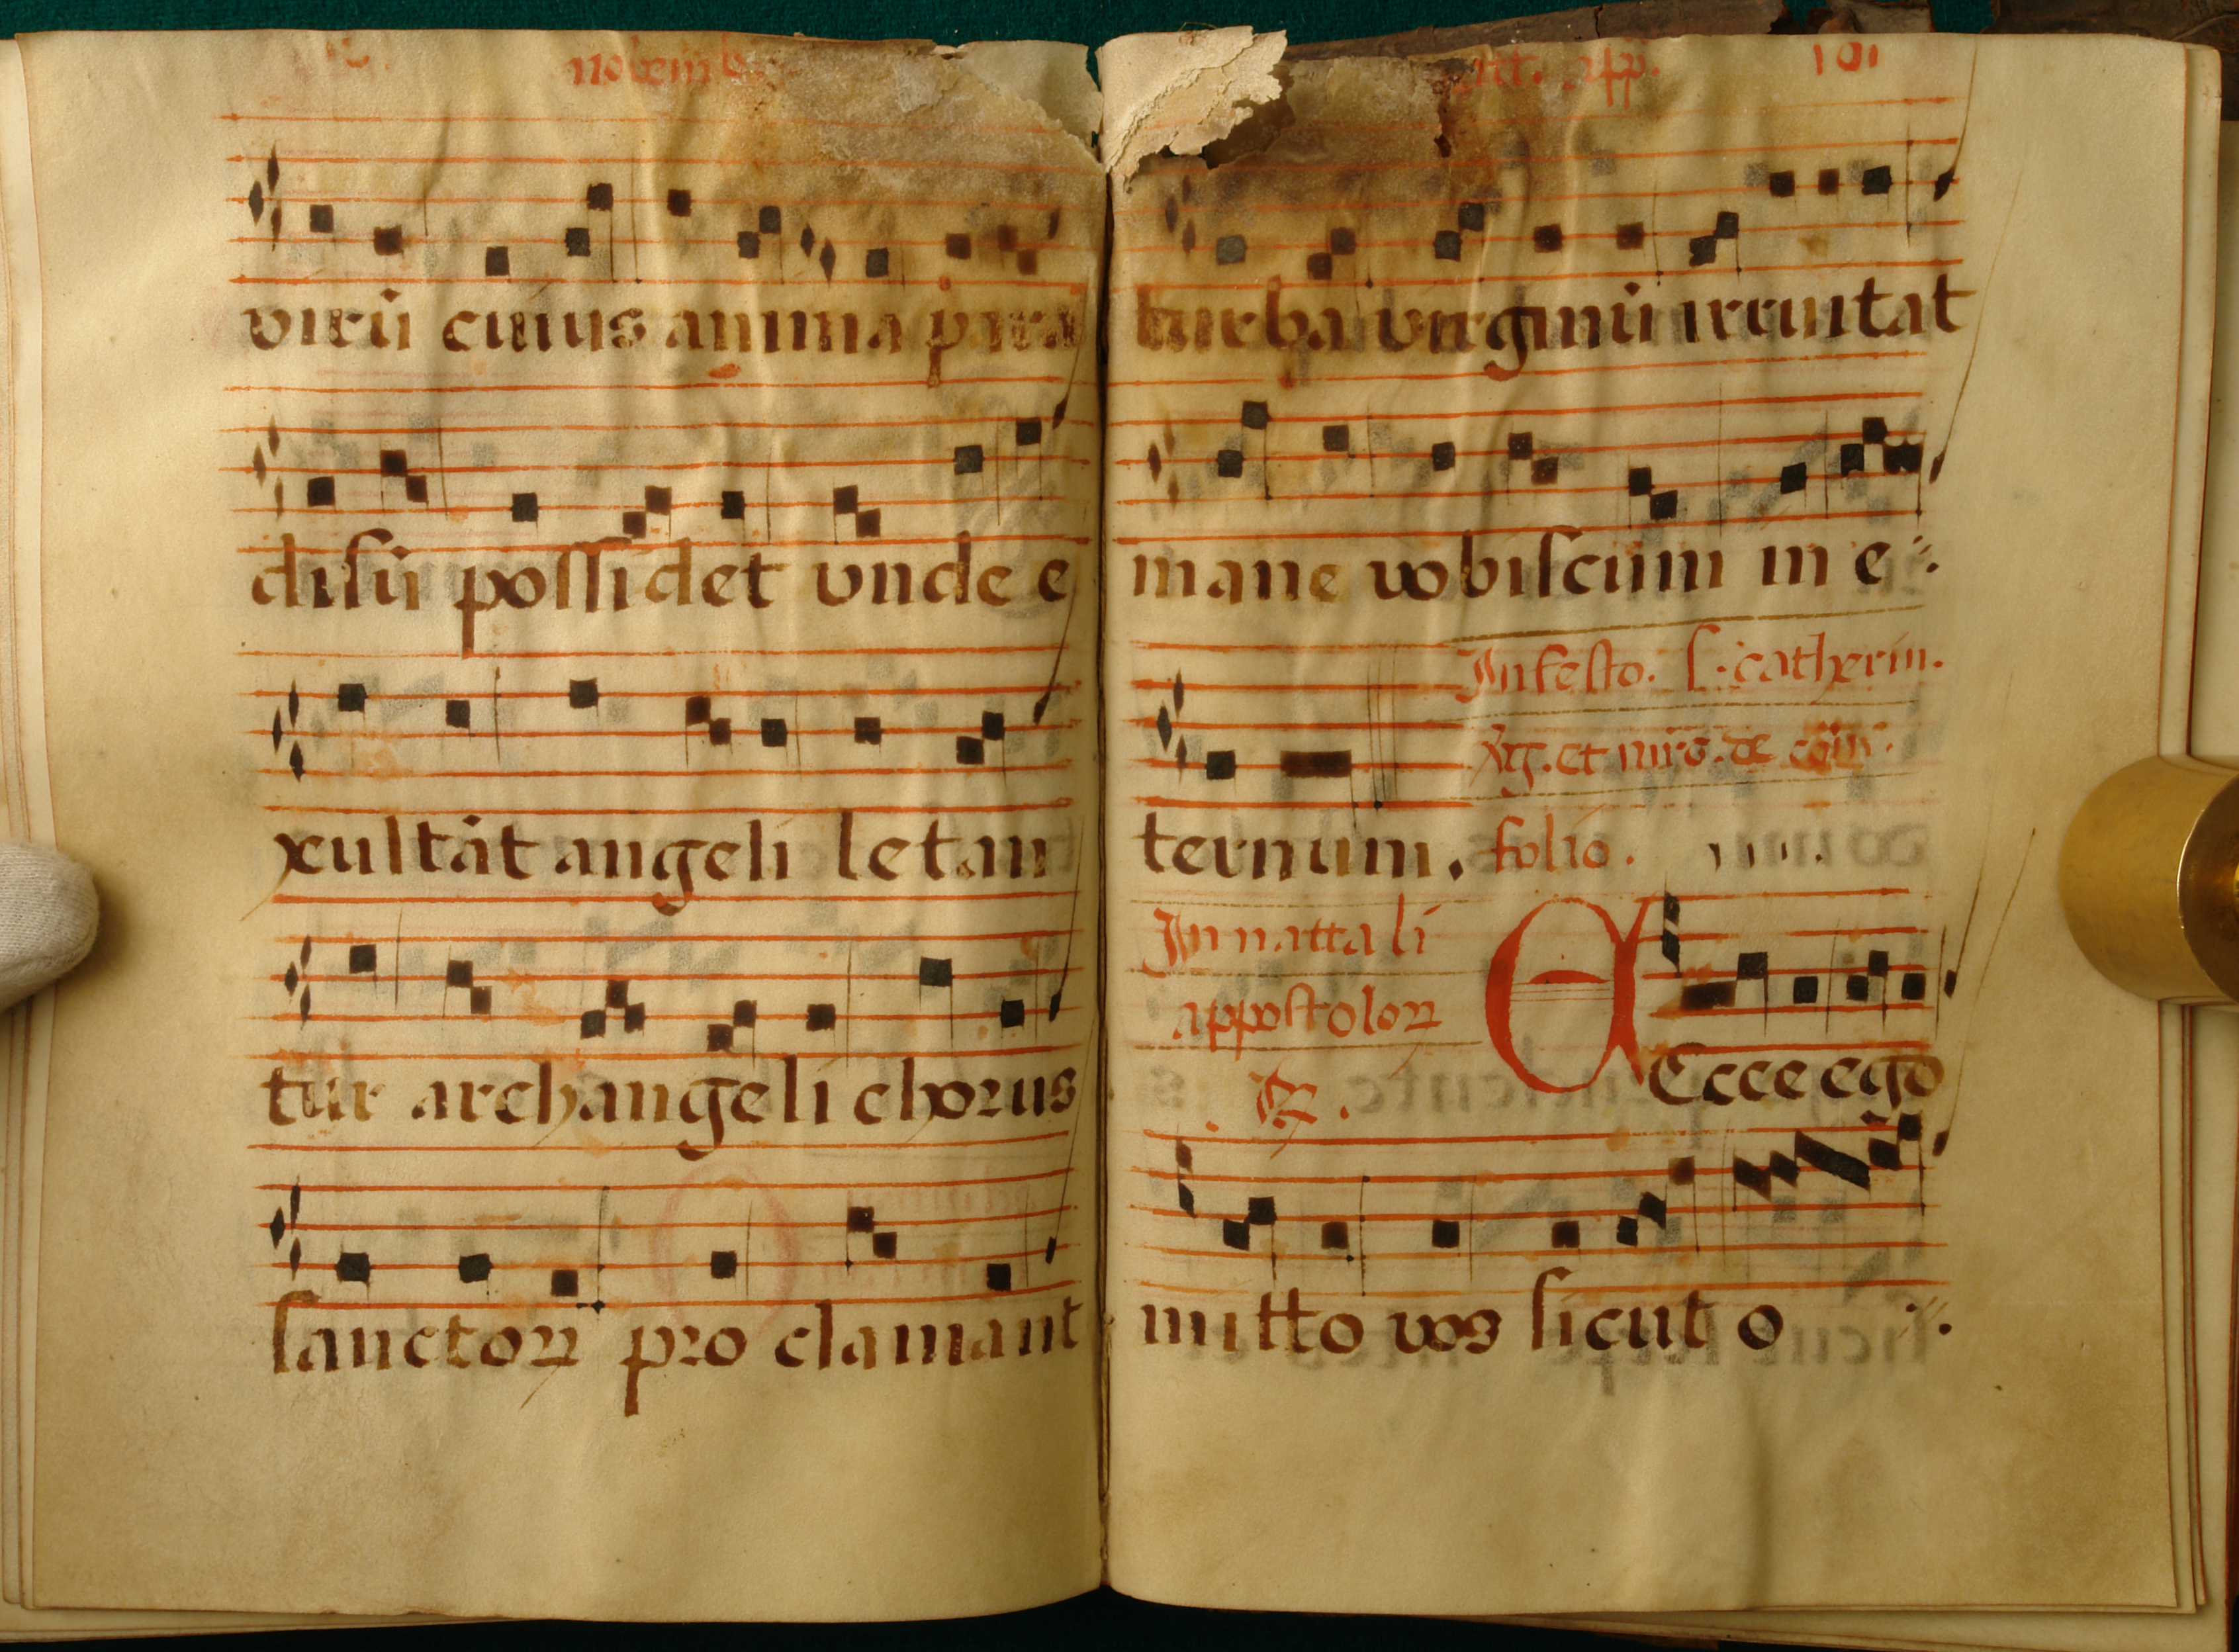 novemb.
virū cuius anima para
disū possidet vnde e
xultāt angeli letan
tur archangeli chorus
sanctoꝝ pro clamant
app. 101
turba virginū inuitat
mane vobiscum in e
In festo. s. catherin.
et mrs. de
ternum. folio.
In nattali
appostoloꝝ
Ecce ego
mitto vos sicut o